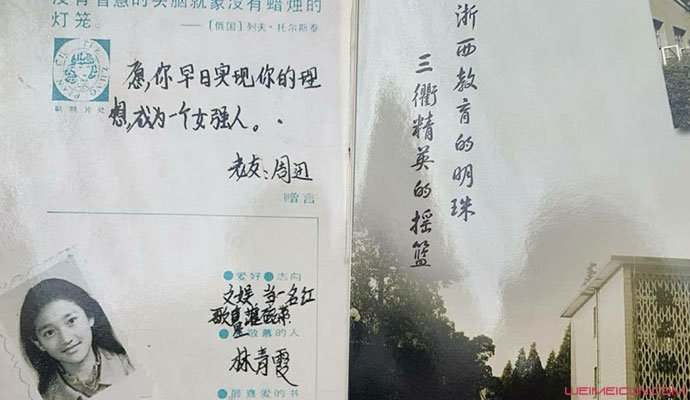 没有智慧的头脑就象没有蜡烛的
灯笼。
——〔俄国〕列夫·托尔斯泰
贴照片处
愿，你早日实现你的理
想，成为一个女强人。
老友：周迅
赠言
爱好 志向
文娱 当一名红
歌星
敬慕的人
林青霞
最喜爱的书
浙西教育的明珠
三衢精英的摇篮
WEIMEICUN.COM